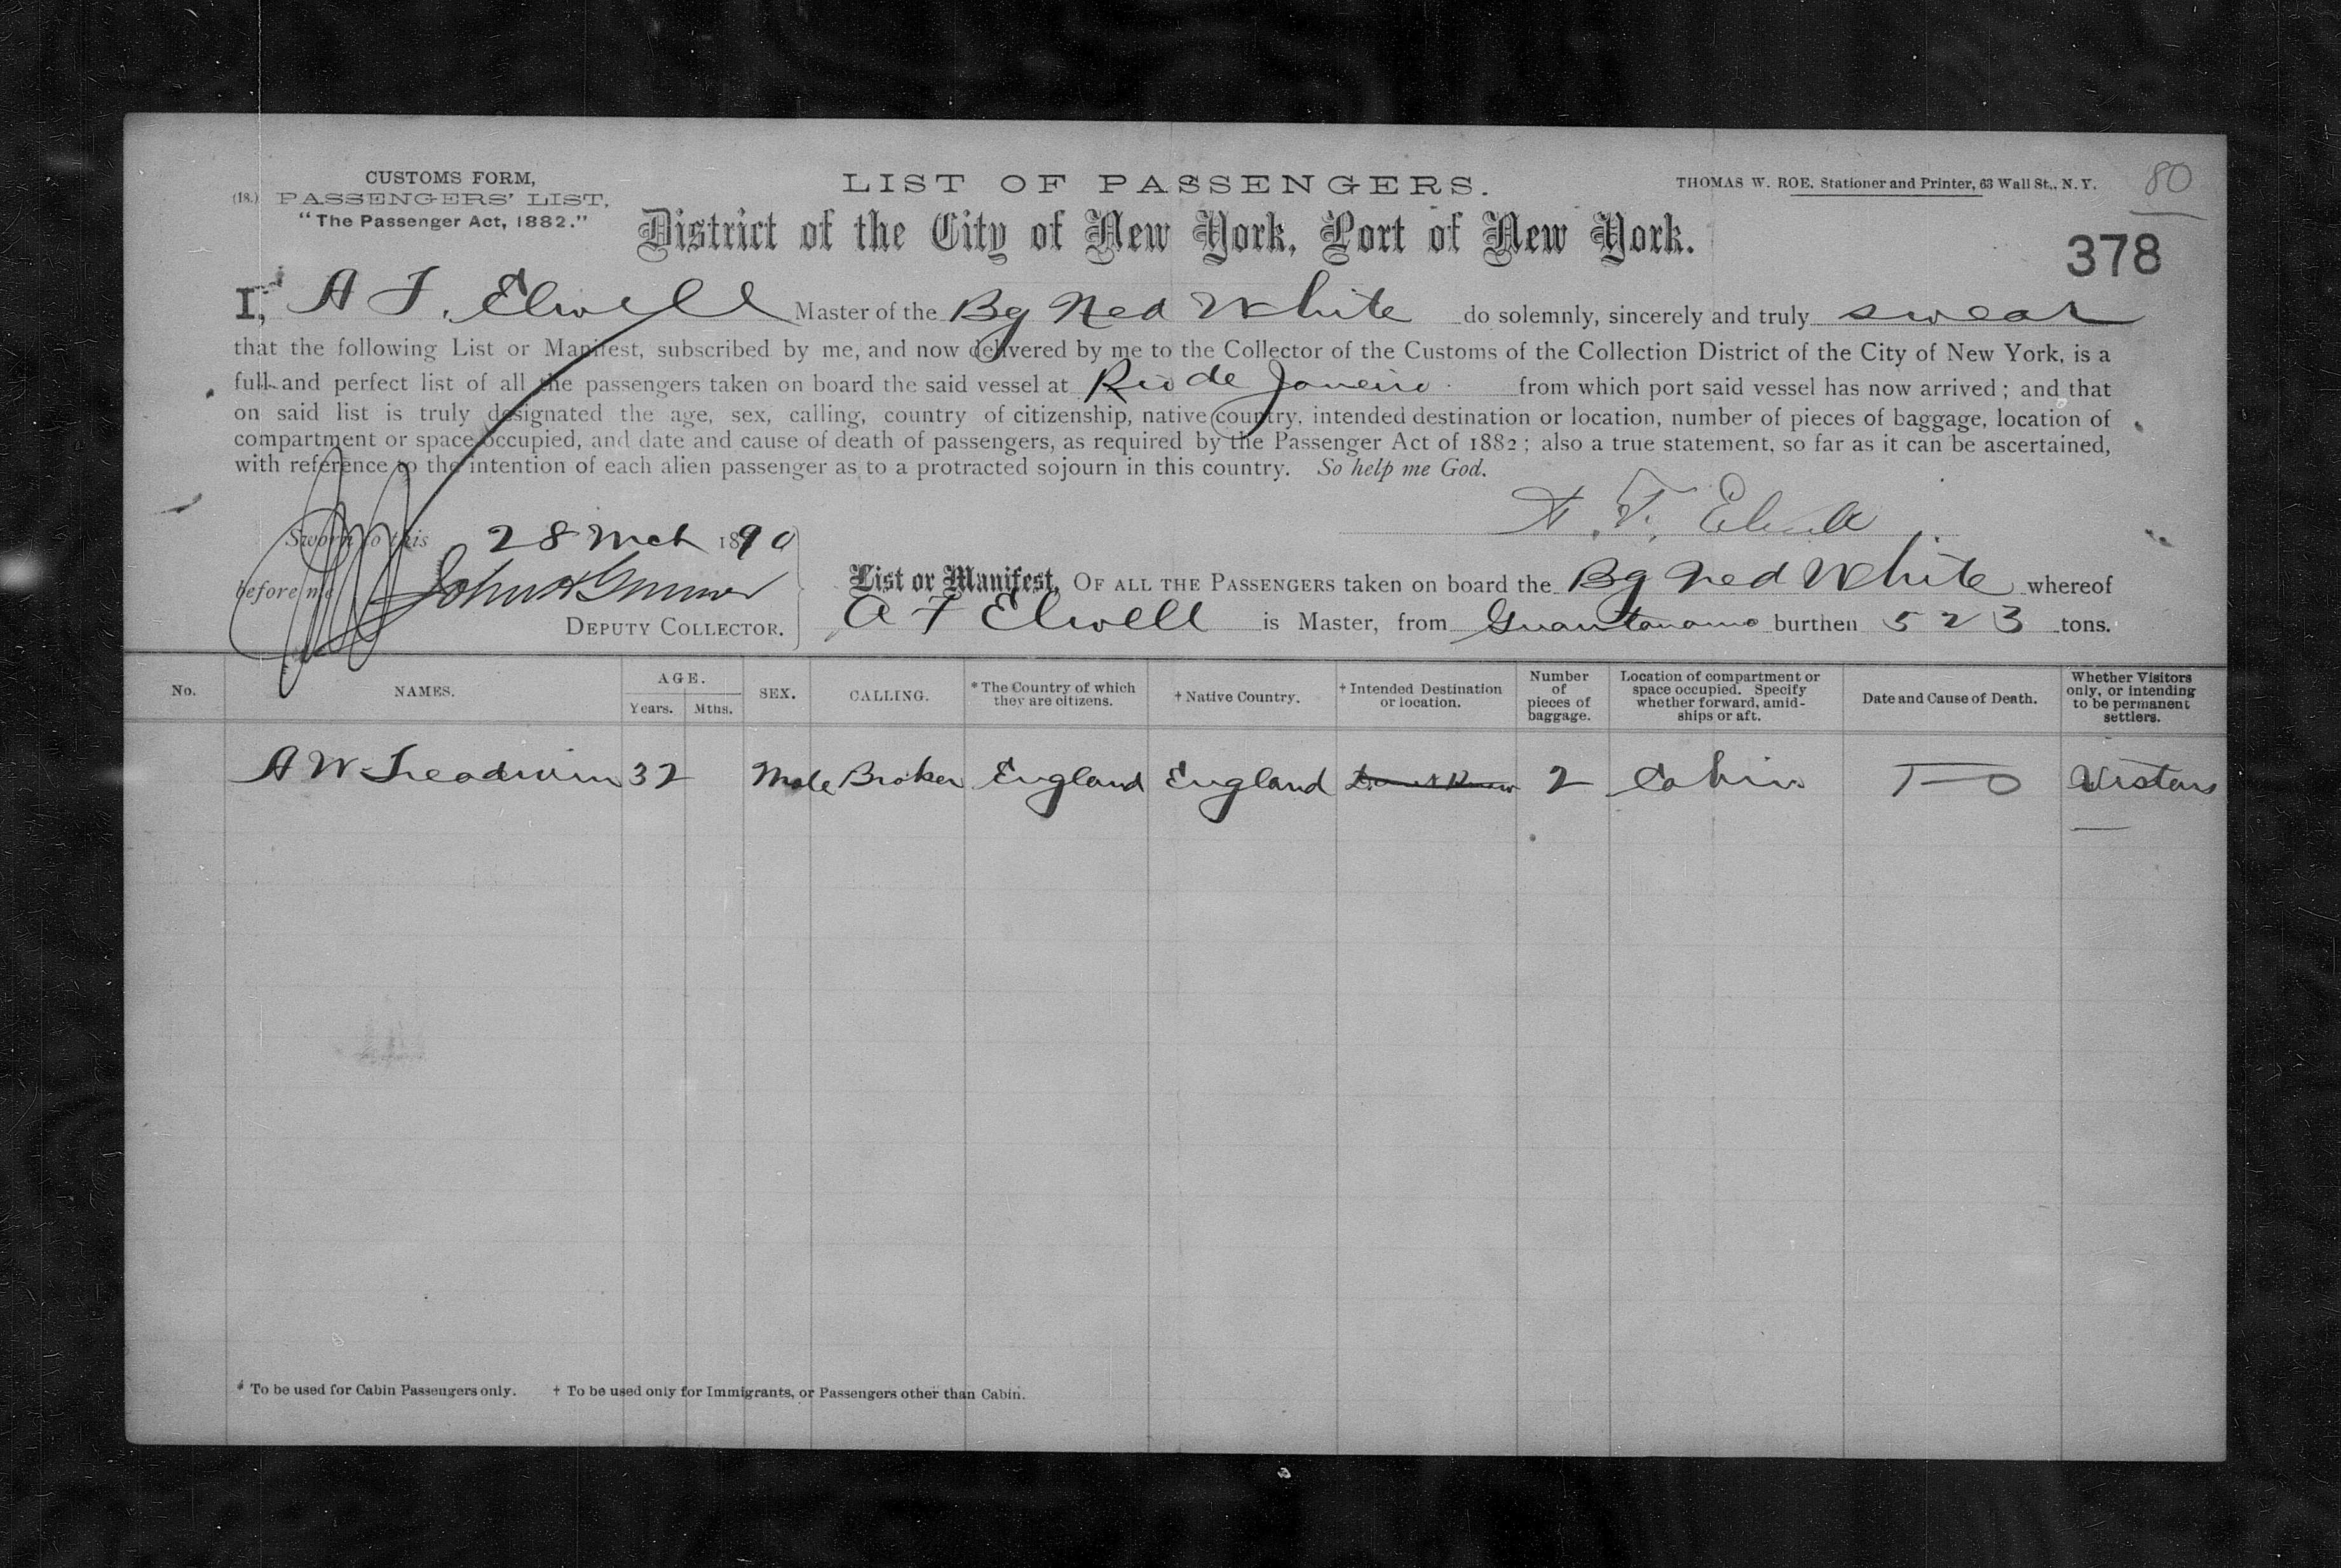 CUSTOMS FORM,
(18.) PASSENGERS' LIST,
"The Passenger Act, 1882."
LIST OF PASSENGERS.
THOMAS W. ROE. Stationer and Printer, 63 Wall St., N. Y.
80
District of the City of New York, Port of New York.
378
I, A F. Elwell Master of the Bg Ned White do solemnly, sincerely and truly swear
that the following List or Manifest, subscribed by me, and now delivered by me to the Collector of the Customs of the Collection District of the City of New York, is a
full and perfect list of all the passengers taken on board the said vessel at Rio de Janeiro from which port said vessel has now arrived; and that
on said list is truly designated the age, sex, calling, country of citizenship, native country, intended destination or location, number of pieces of baggage, location of
compartment or space occupied, and date and cause of death of passengers, as required by the Passenger Act of 1882; also a true statement, so far as it can be ascertained,
with reference to the intention of each alien passenger as to a protracted sojourn in this country. So help me God.
A. F. Elwell
Sworn to this 28 Mch 1890
before me John
DEPUTY COLLECTOR.
List or Manifest, OF ALL THE PASSENGERS taken on board the Bg Ned White whereof
A F Elwell is Master, from Guantanamo burthen 523 tons.
No. NAMES. AGE. Years. Mths. SEX. CALLING. * The Country of which they are citizens. † Native Country. † Intended Destination or location. Number of pieces of baggage. Location of compartment or space occupied. Specify whether forward, amidships or aft. Date and Cause of Death. Whether Visitors only, or intending to be permanent settlers.
A W Treadwin 32 Male Broker England England 2 Cabin Vistors
* To be used for Cabin Passengers only. † To be used only for Immigrants, or Passengers other than Cabin.